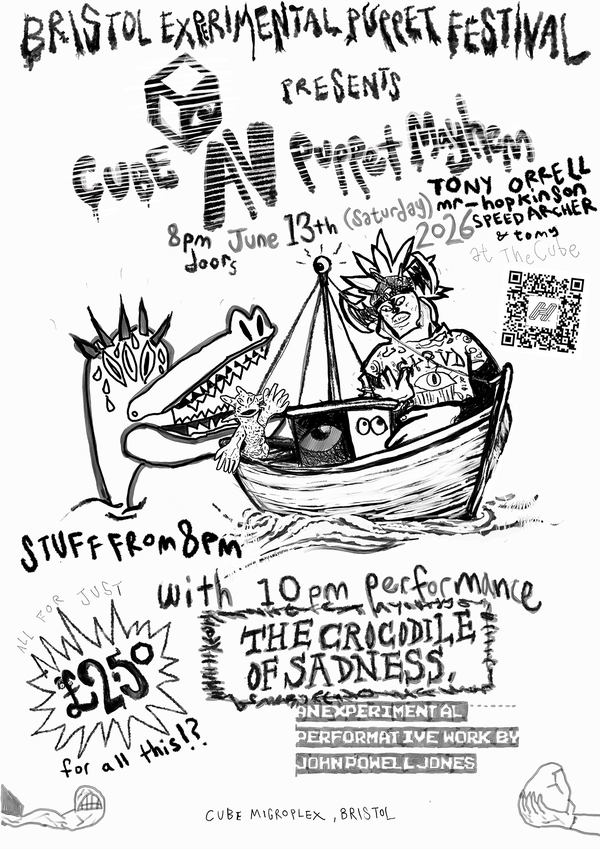 BRISTOL EXPERIMENTAL PUPPET FESTIVAL
PRESENTS
CUBE N Puppet Mayhem
TONY ORRELL
mr-hopkinson
SPEED ARCHER
& tomy
8pm June 13th (Saturday) 2026
doors
at The Cube
STUFF FROM 8PM
with 10pm performance
THE CROCODILE
OF SADNESS.
AN EXPERIMENTAL
PERFORMATIVE WORK BY
JOHN POWELL JONES
ALL FOR JUST
£2.50
for all this!?
CUBE MICROPLEX, BRISTOL